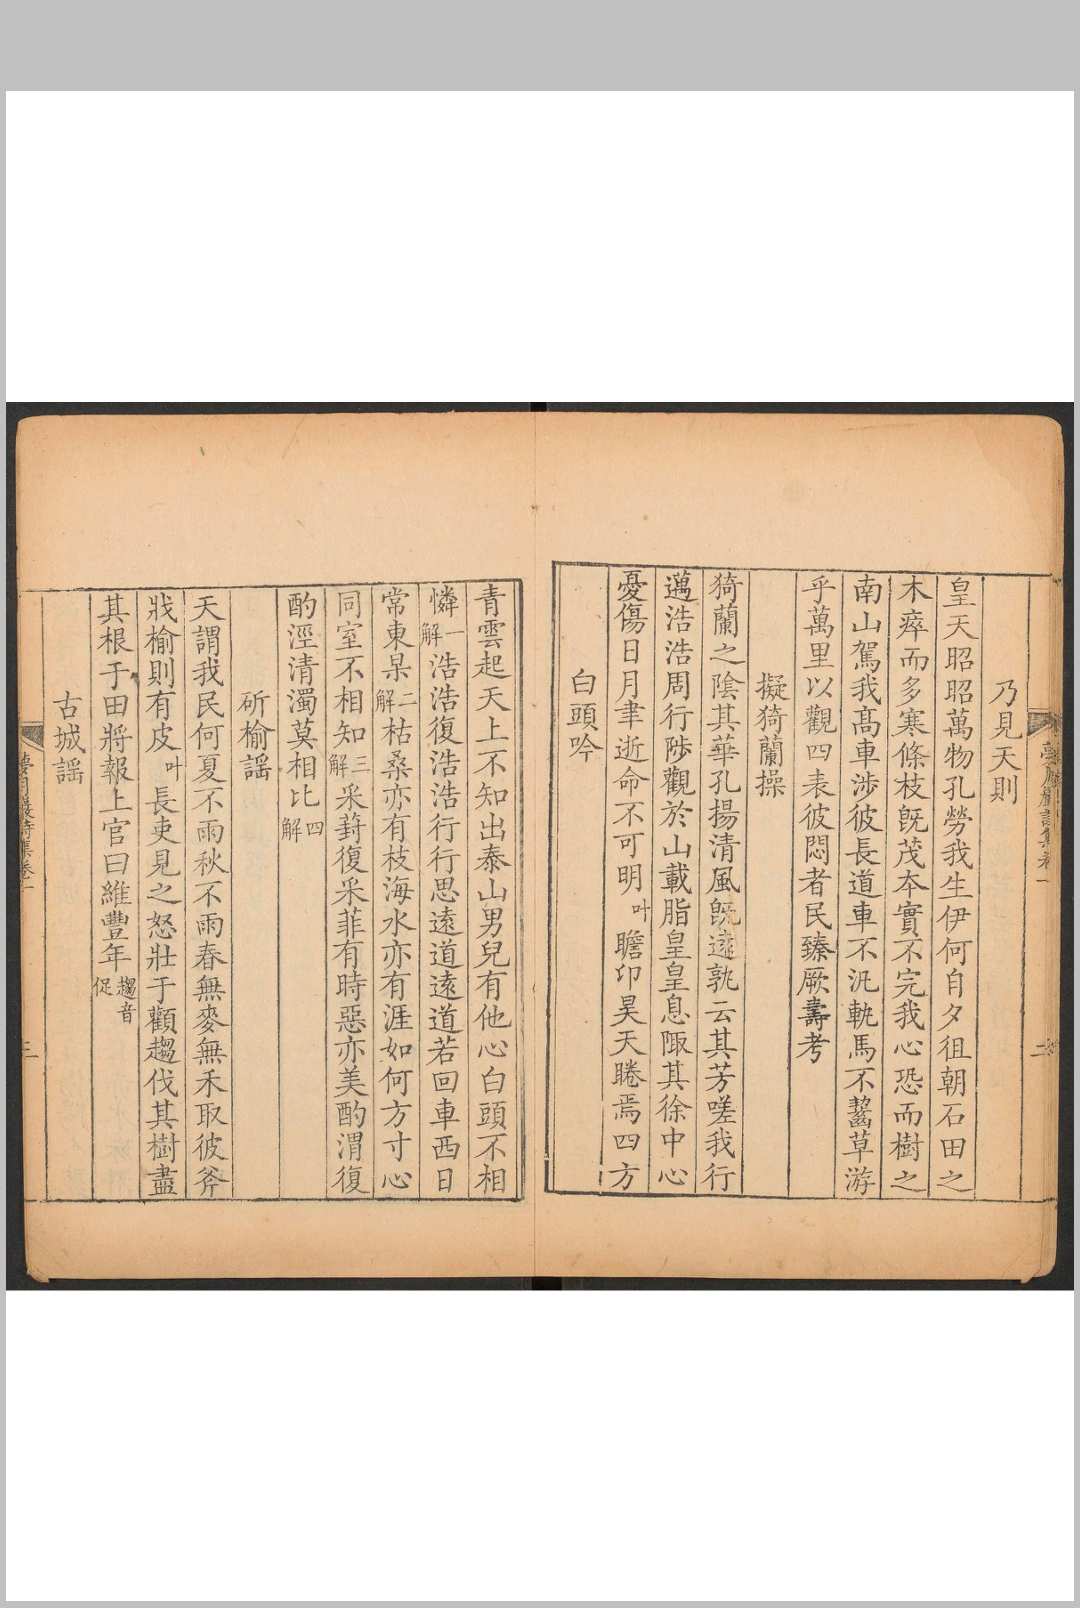 乃見天則
皇天昭昭萬物孔勞我生伊何自夕徂朝石田之
木瘁而多寒條枝旣茂本實不完我心恐而樹之
南山駕我髙車涉彼長道車不汎軌馬不齧草游
乎萬里以觀四表彼悶者民臻厥壽考
擬猗蘭操
猗蘭之陰其華孔揚清風旣逺孰云其芳嗟我行
邁浩浩周行陟觀於山載脂皇皇息陬其徐中心
憂傷日月聿逝命不可明叶瞻卬昊天睠焉四方
白頭吟
青雲起天上不知出泰山男兒有他心白頭不相
憐一解浩浩復浩浩行行思逺道逺道若回車西日
常東杲二解枯桑亦有枝海水亦有涯如何方寸心
同室不相知三解采葑復采菲有時惡亦美酌渭復
酌涇清濁莫相比四解
斫榆謡
天謂我民何夏不雨秋不雨春無麥無禾取彼斧
戕榆則有皮叶長吏見之怒壯于顴趨伐其樹盡
其根于田將報上官曰維豐年趨音促
古城謡
卷一
三